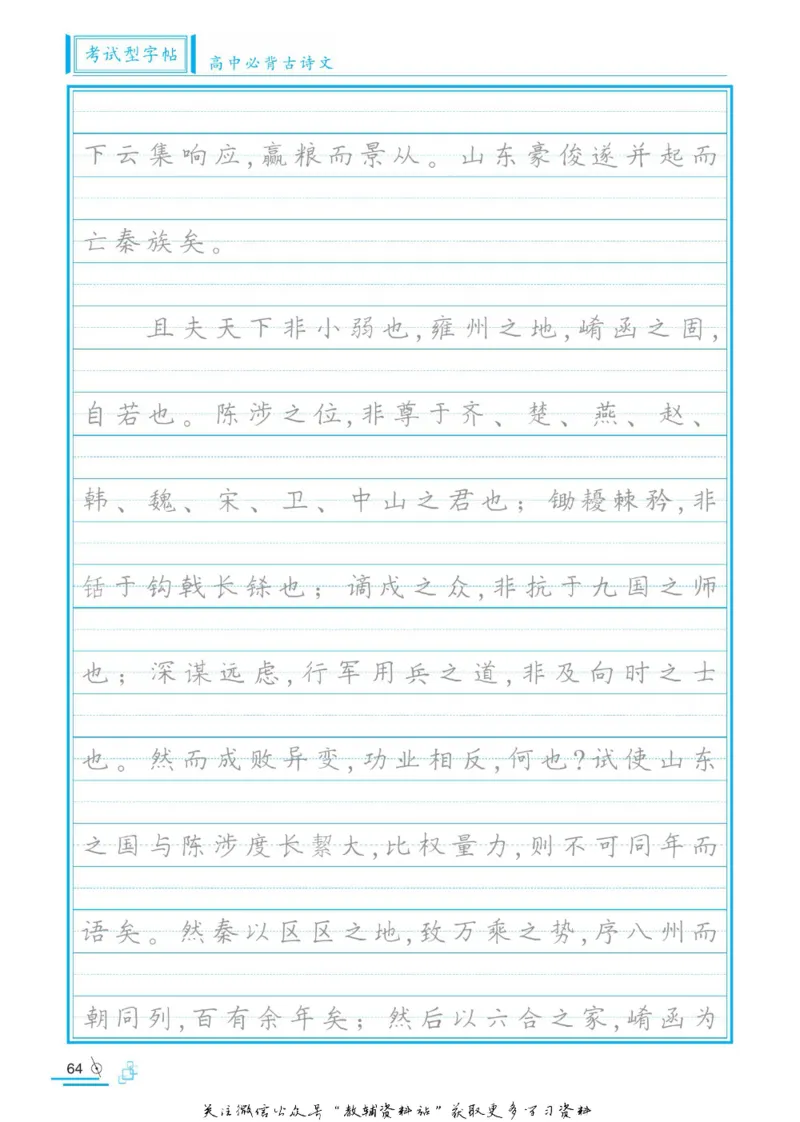 考试型字帖
高中必背古诗文
下云集响应,赢粮而景从。山东豪俊遂并起而
亡秦族矣。
且夫天下非小弱也,雍州之地,崤函之固,
自若也。陈涉之位,非尊于齐、楚、燕、赵、
韩、魏、宋、卫、中山之君也；锄櫌棘矜,非
铦于钩戟长铩也；谪戍之众,非抗于九国之师
也；深谋远虑,行军用兵之道,非及向时之士
也。然而成败异变,功业相反,何也?试使山东
之国与陈涉度长絜大,比权量力,则不可同年而
语矣。然秦以区区之地,致万乘之势,序八州而
朝同列,百有余年矣；然后以六合之家,崤函为
64
关注微信公众号“教辅资料站”获取更多学习资料